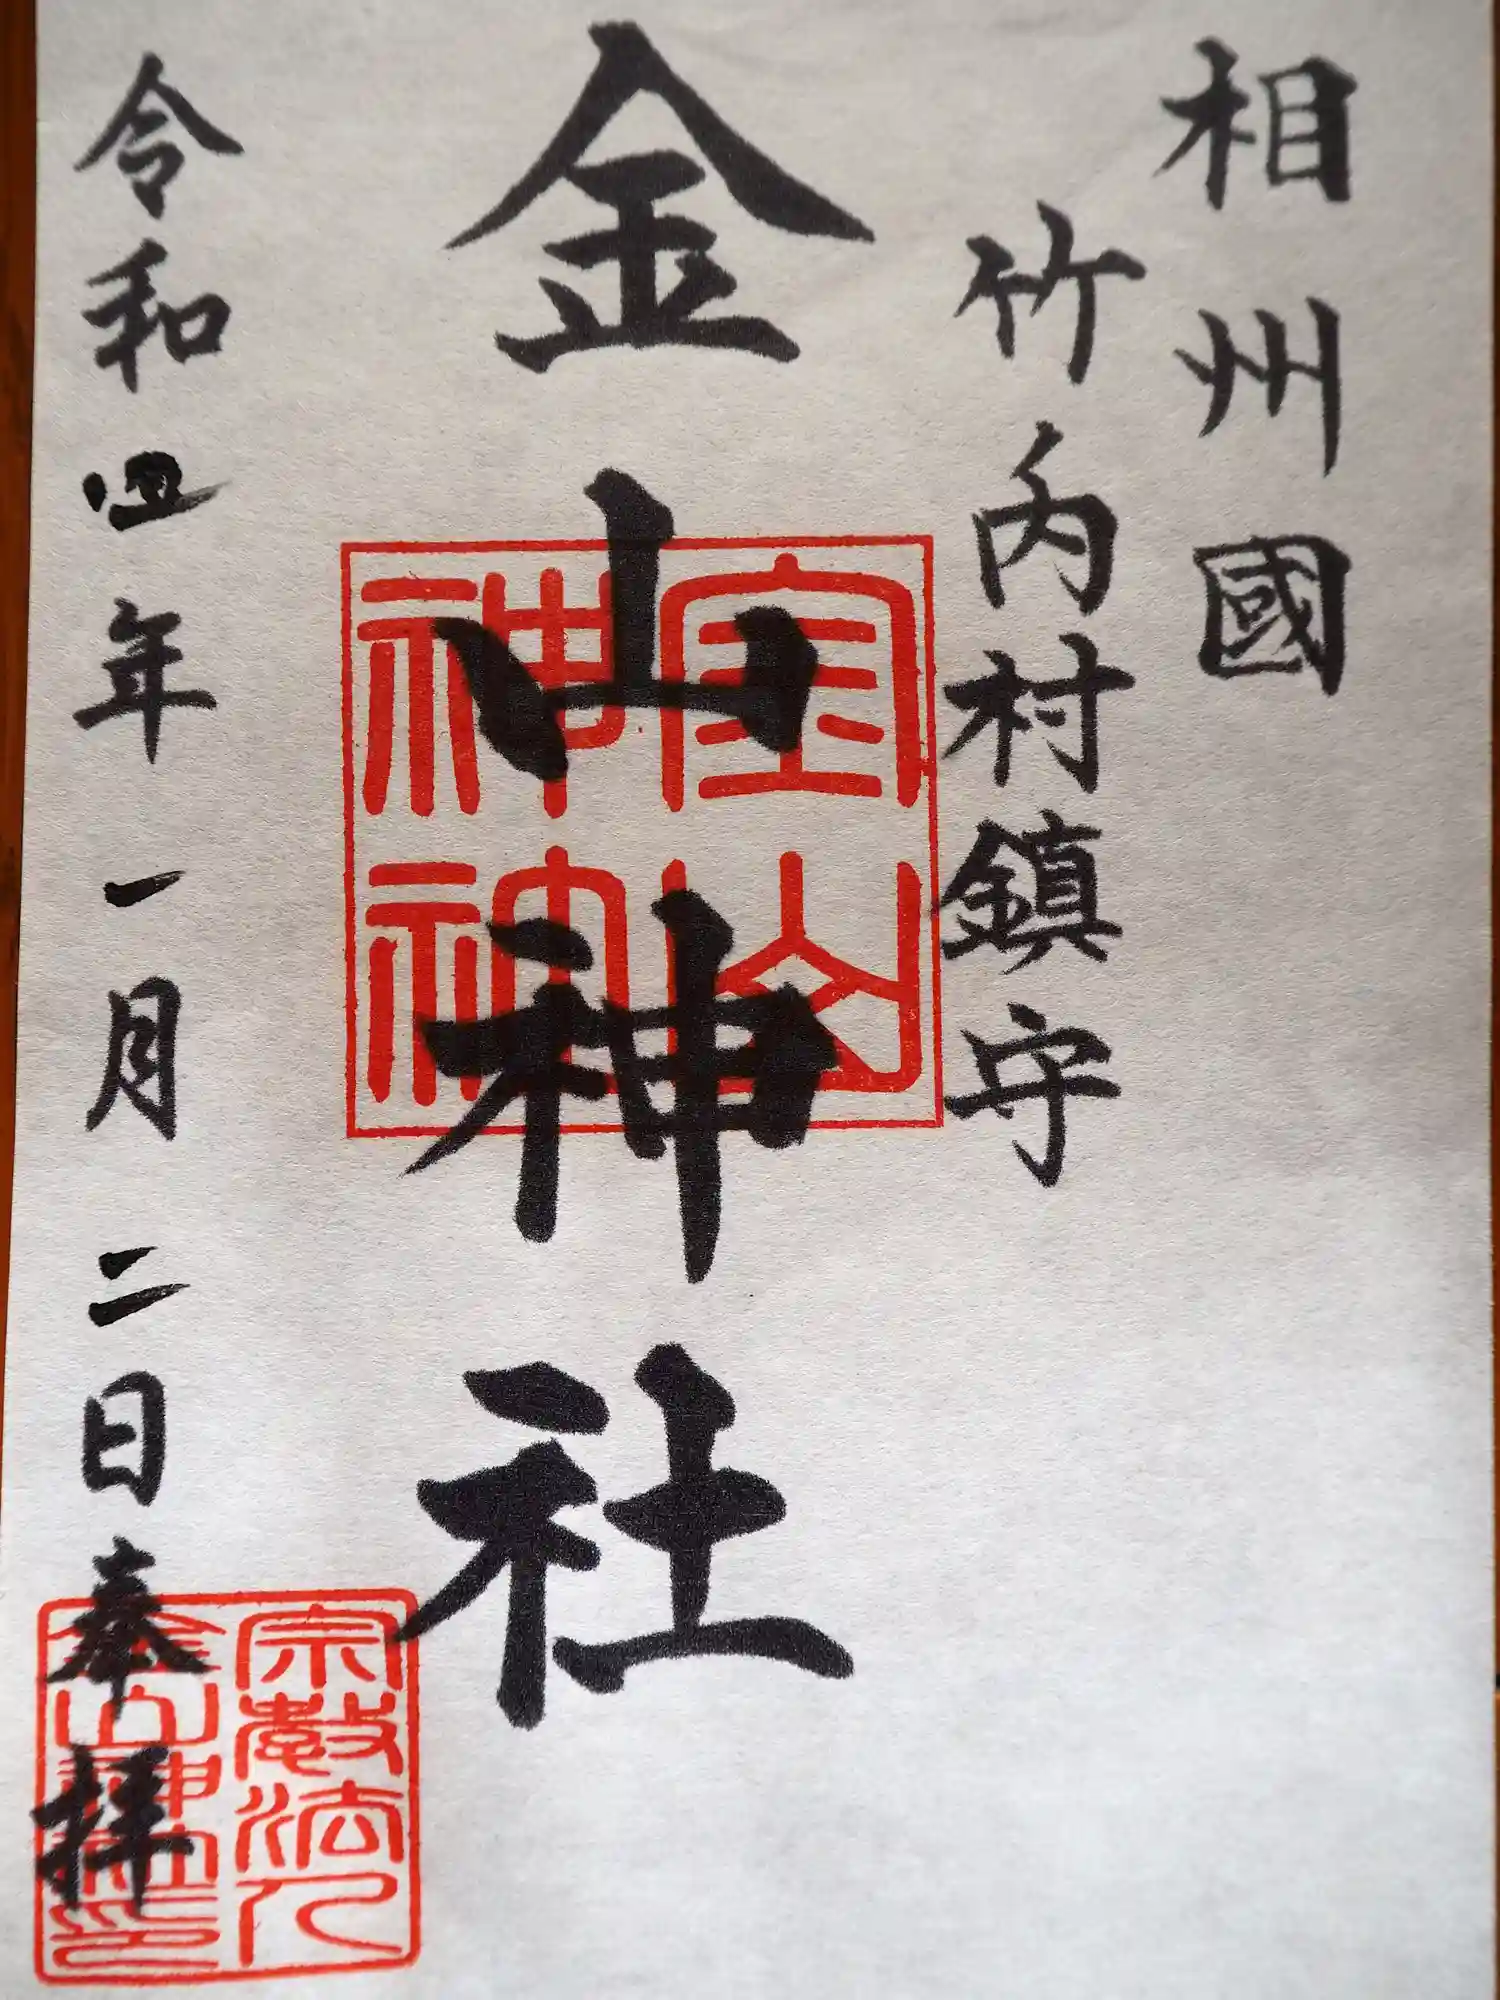 相州國
竹内村鎮守
金山神社
令和四年一月二日奉拝
宗教法人
金山神社印